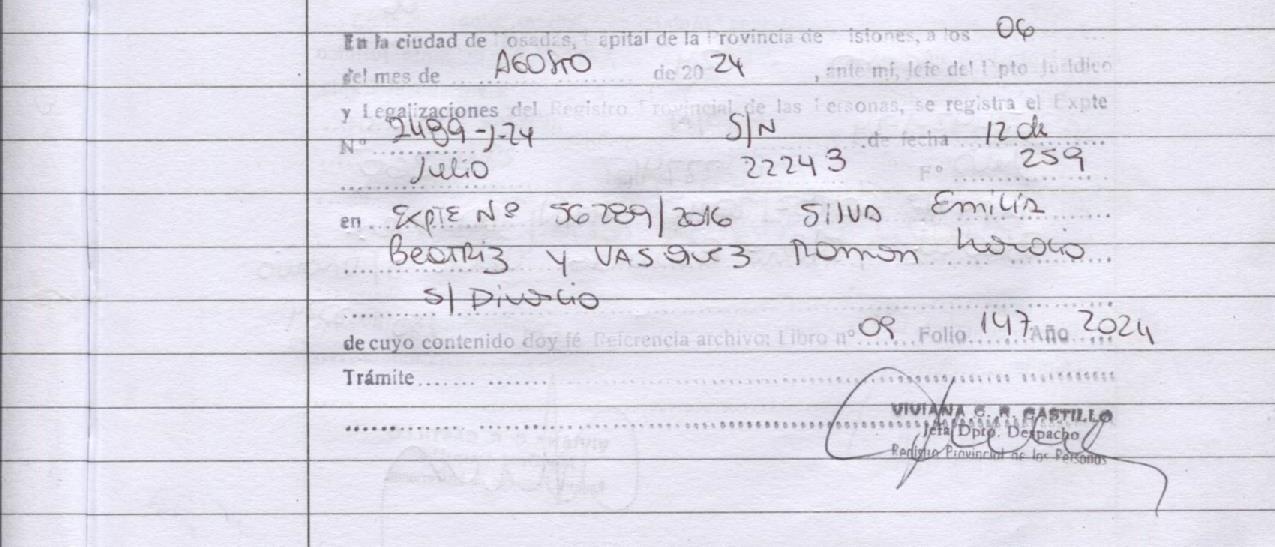 En la ciudad de Posadas, Capital de la Provincia de Misiones, a los 06
del mes de AGOSTO de 20 24, ante mi, Jefe del Dpto Jurídico
y Legalizaciones del Registro Provincial de las Personas, se registra el Expte
N° 2489-J-24 S/N de fecha 12 de
Julio 22243 F° 259
en EXPTE Nº 56289/2016 SILVA Emilia
BEATRIZ Y VASQUEZ Ramon Horacio
S/ Divorcio
de cuyo contenido doy fé Referencia archivo: Libro nº 09 Folio 147 Año 2024
Trámite
VIVIANA C. R. CASTILLO
Jefa Dpto. Despacho
Registro Provincial de las Personas